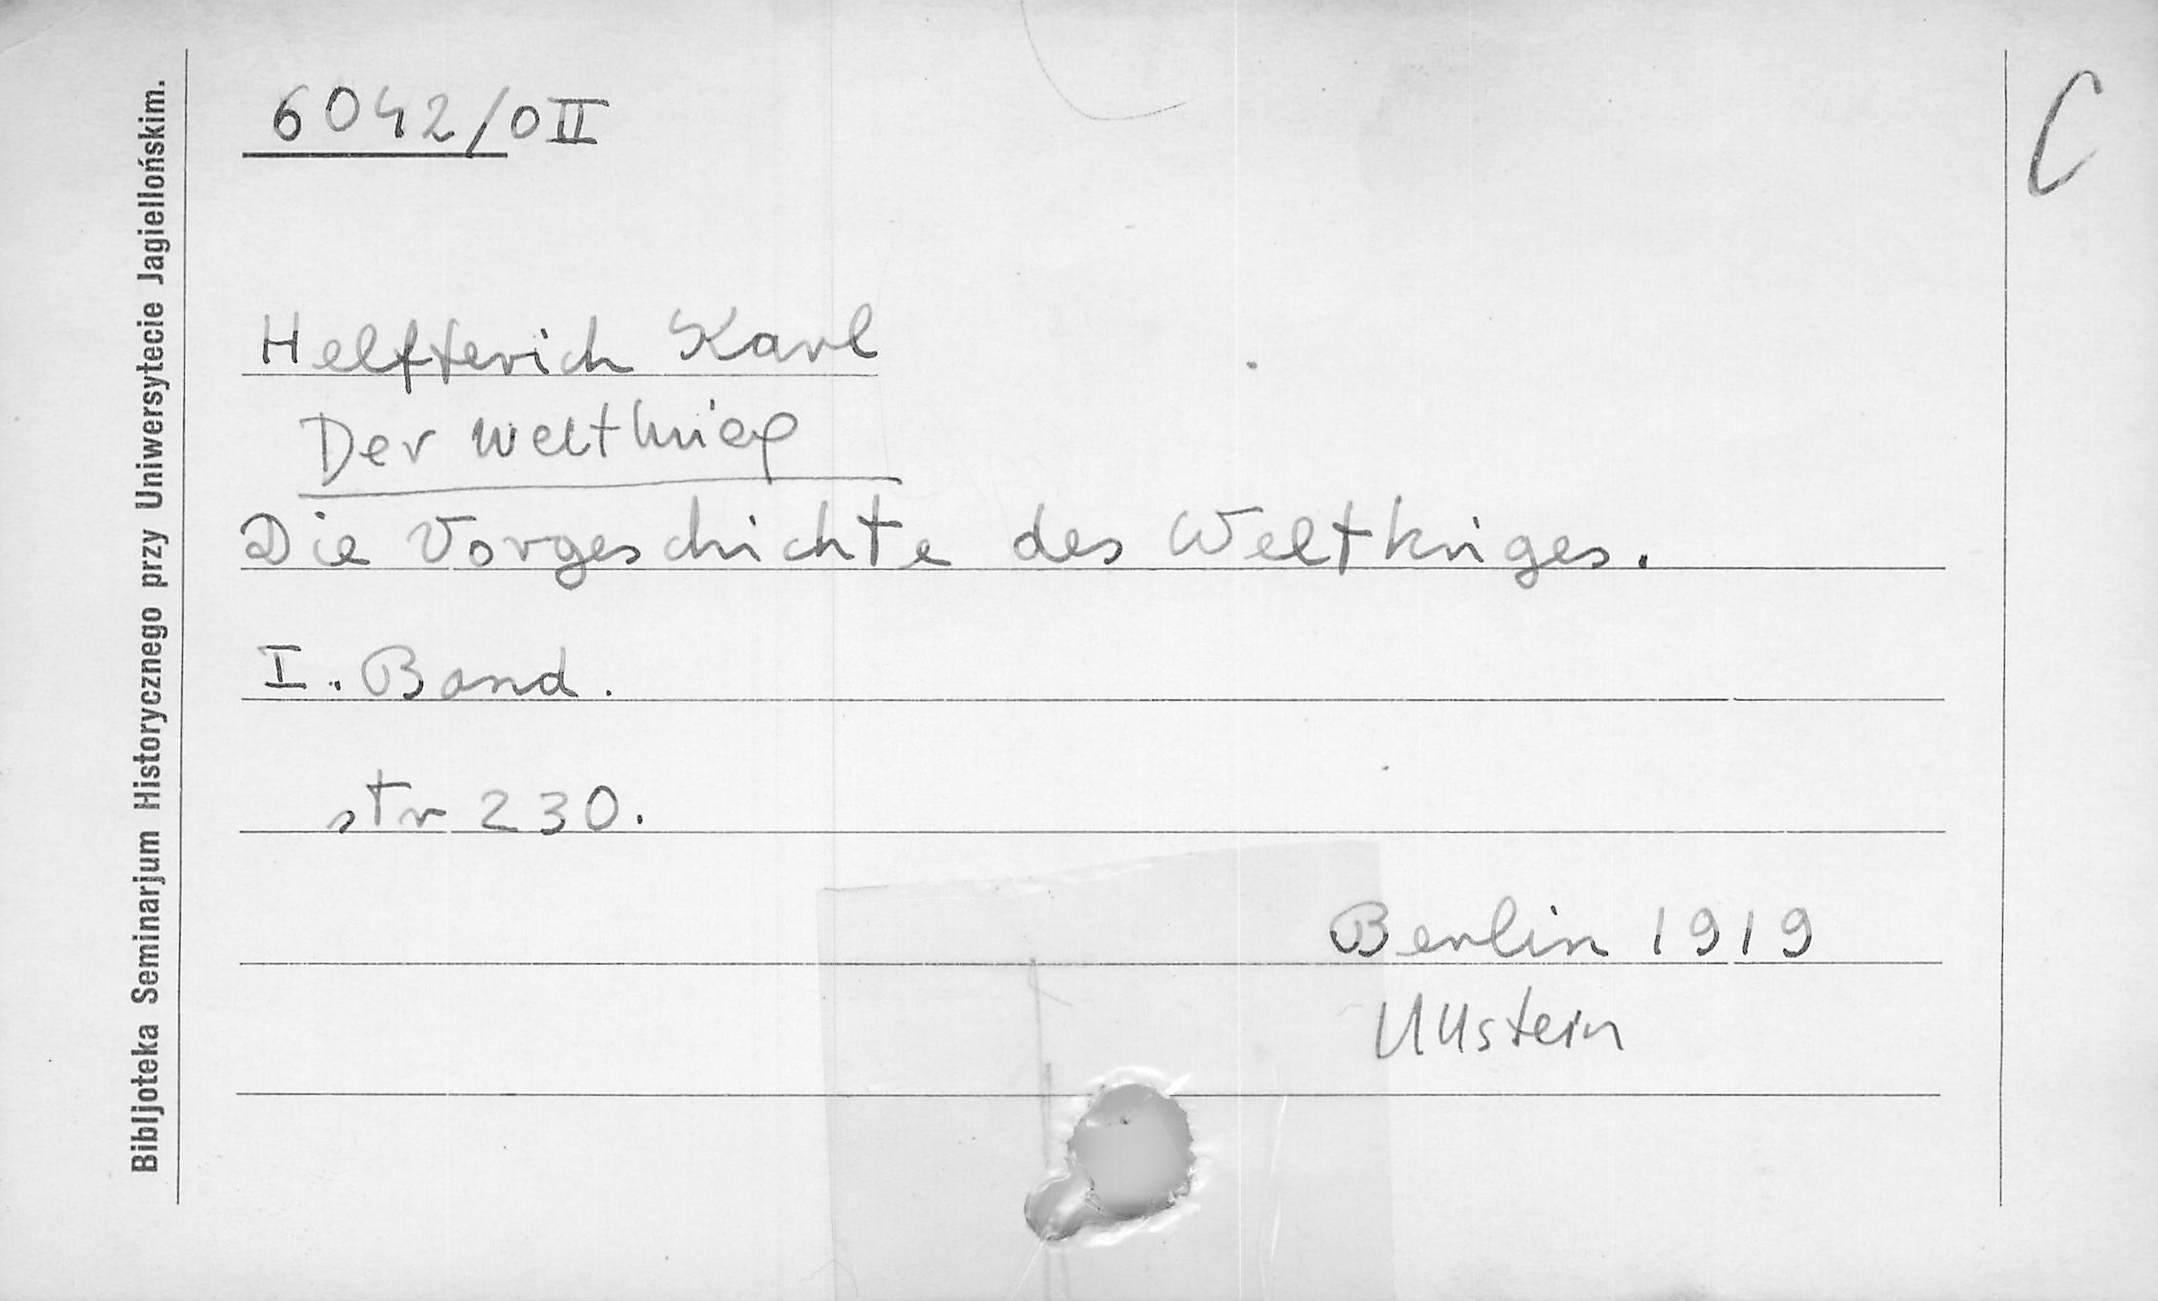 6042/0II
C
Helfterich Karl
Der Weltkrieg
Die Vorgeschichte des Weltkriges.
I. Band.
str 230.
Berlin 1919
Ullstein
Bibljoteka Seminarjum Historycznego przy Uniwersytecie Jagiellońskim.